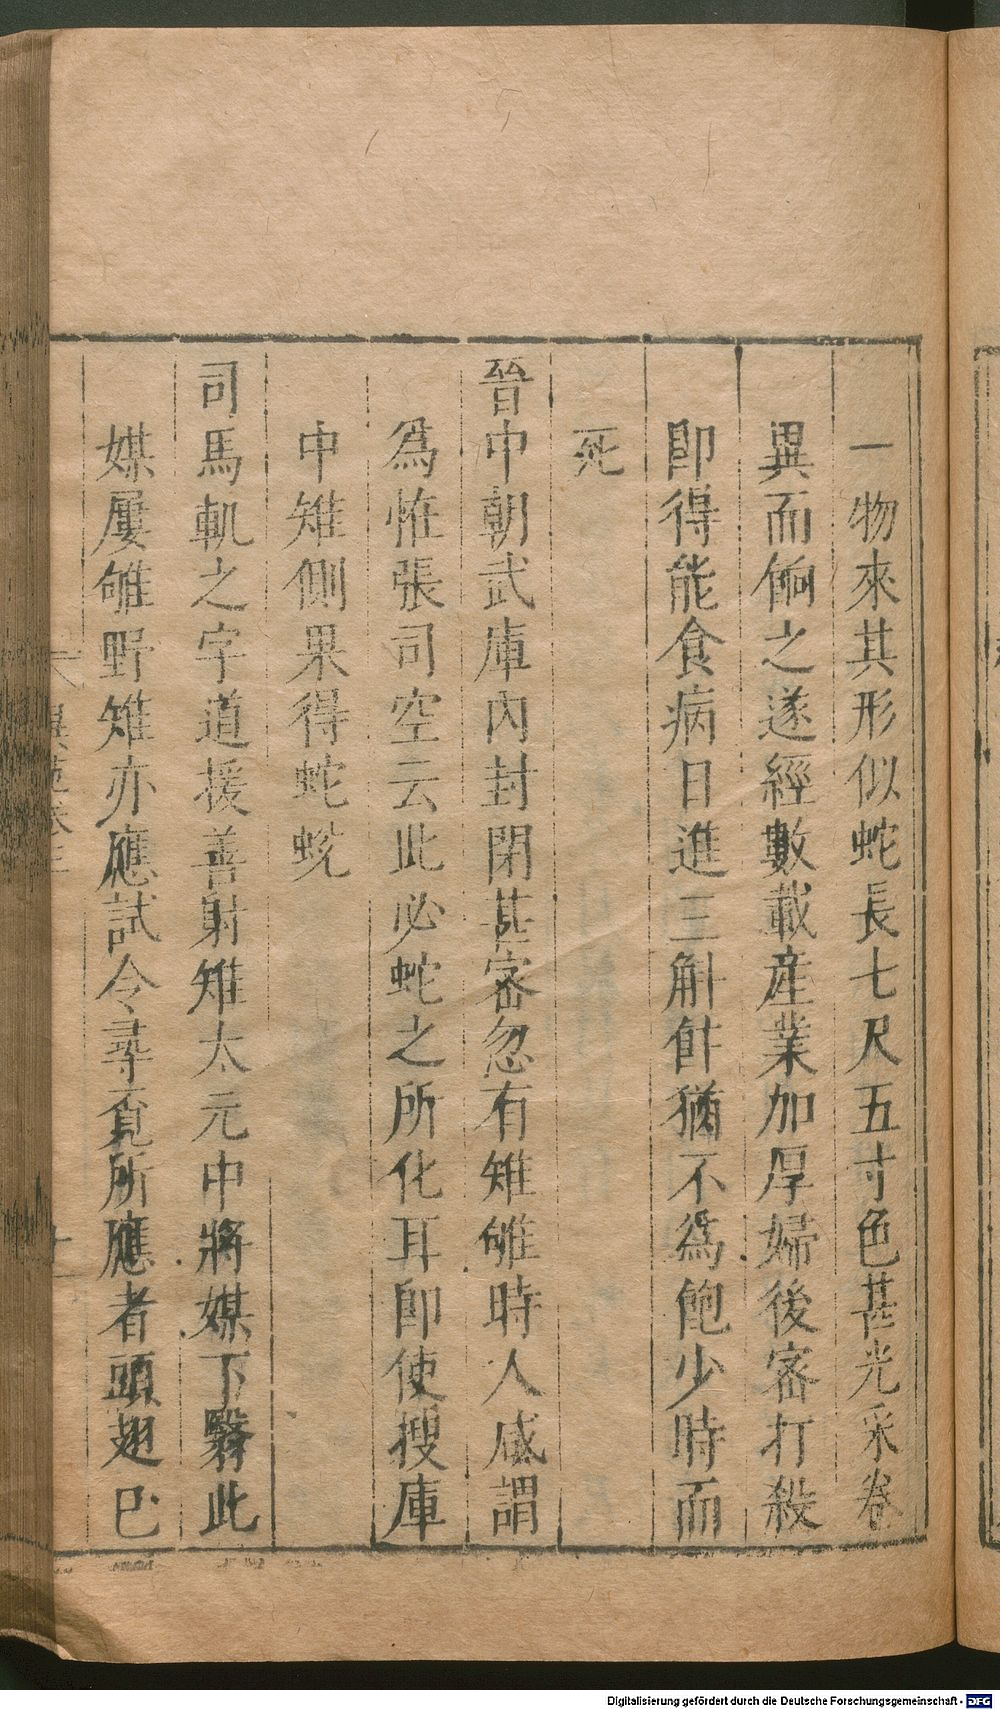 一物來其形似蛇長七尺五寸色甚光采卷
異而餉之遂經數載産業加厚婦後密打殺
卽得能食病日進三斛飰猶不爲飽少時而
死
晉中朝武庫內封閉甚密忽有雉雊時人咸謂
爲恠張司空云此必蛇之所化耳卽使搜庫
中雉側果得蛇蛻
司馬軌之字道援善射雉太元中將媒下翳此
媒屢雊野雉亦應試令尋覔所應者頭翅巳
Digitalisierung gefördert durch die Deutsche Forschungsgemeinschaft - DFG